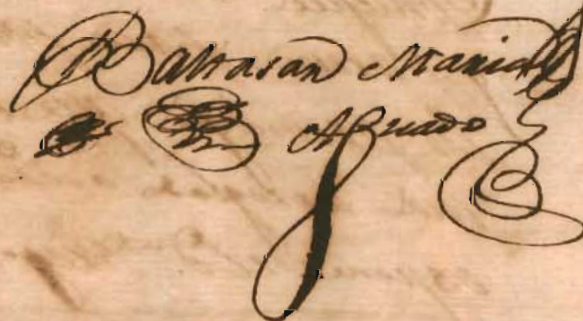 Baltasar Maria
Aguado